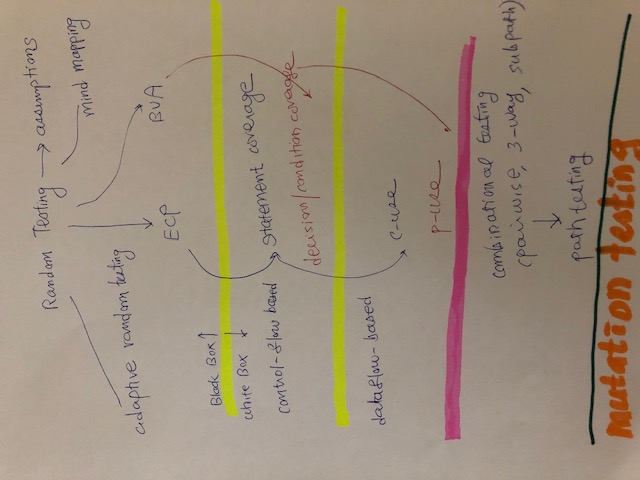 Random Testing → assumptions
mind mapping
adaptive random testing
ECP
BVA
Black Box ↑
white Box ↓
control-flow based
statement coverage
decision/condition coverage
dataflow-based
C-use
P-use
combinational testing
(pairwise, 3-way, subpath)
path testing
mutation testing